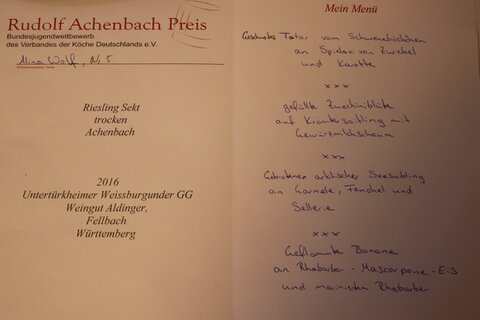 Rudolf Achenbach Preis
Bundesjugendwettbewerb
des Verbandes der Köche Deutschlands e.V.
Alina Wolf, Nr 5
Riesling Sekt
trocken
Achenbach
2016
Untertürkheimer Weissburgunder GG
Weingut Aldinger,
Fellbach
Württemberg
Mein Menü
Tatar vom
an von Zwiebel
und Karotte
xxx
gefüllte Zucchiniblüte
auf Kräutersaitling mit
Gewürzmilchschaum
xxx
Gebratener arktischer Seesaibling
an Garnele, Fenchel und
Sellerie
xxx
Geflämmte Banane
an Rhabarber - Mascarpone - Eis
und marinierten Rhabarber